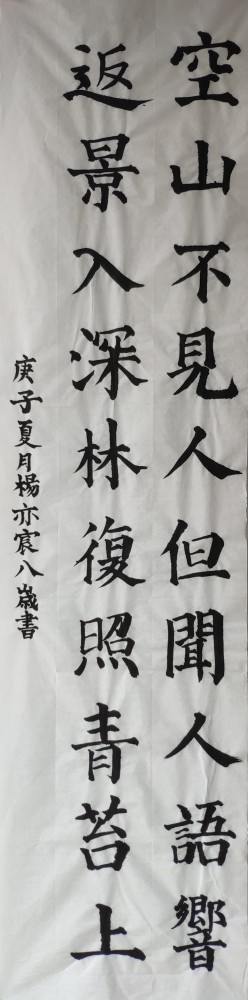 空山不見人但聞人語響
返景入深林復照青苔上
庚子夏月楊亦宸八歲書